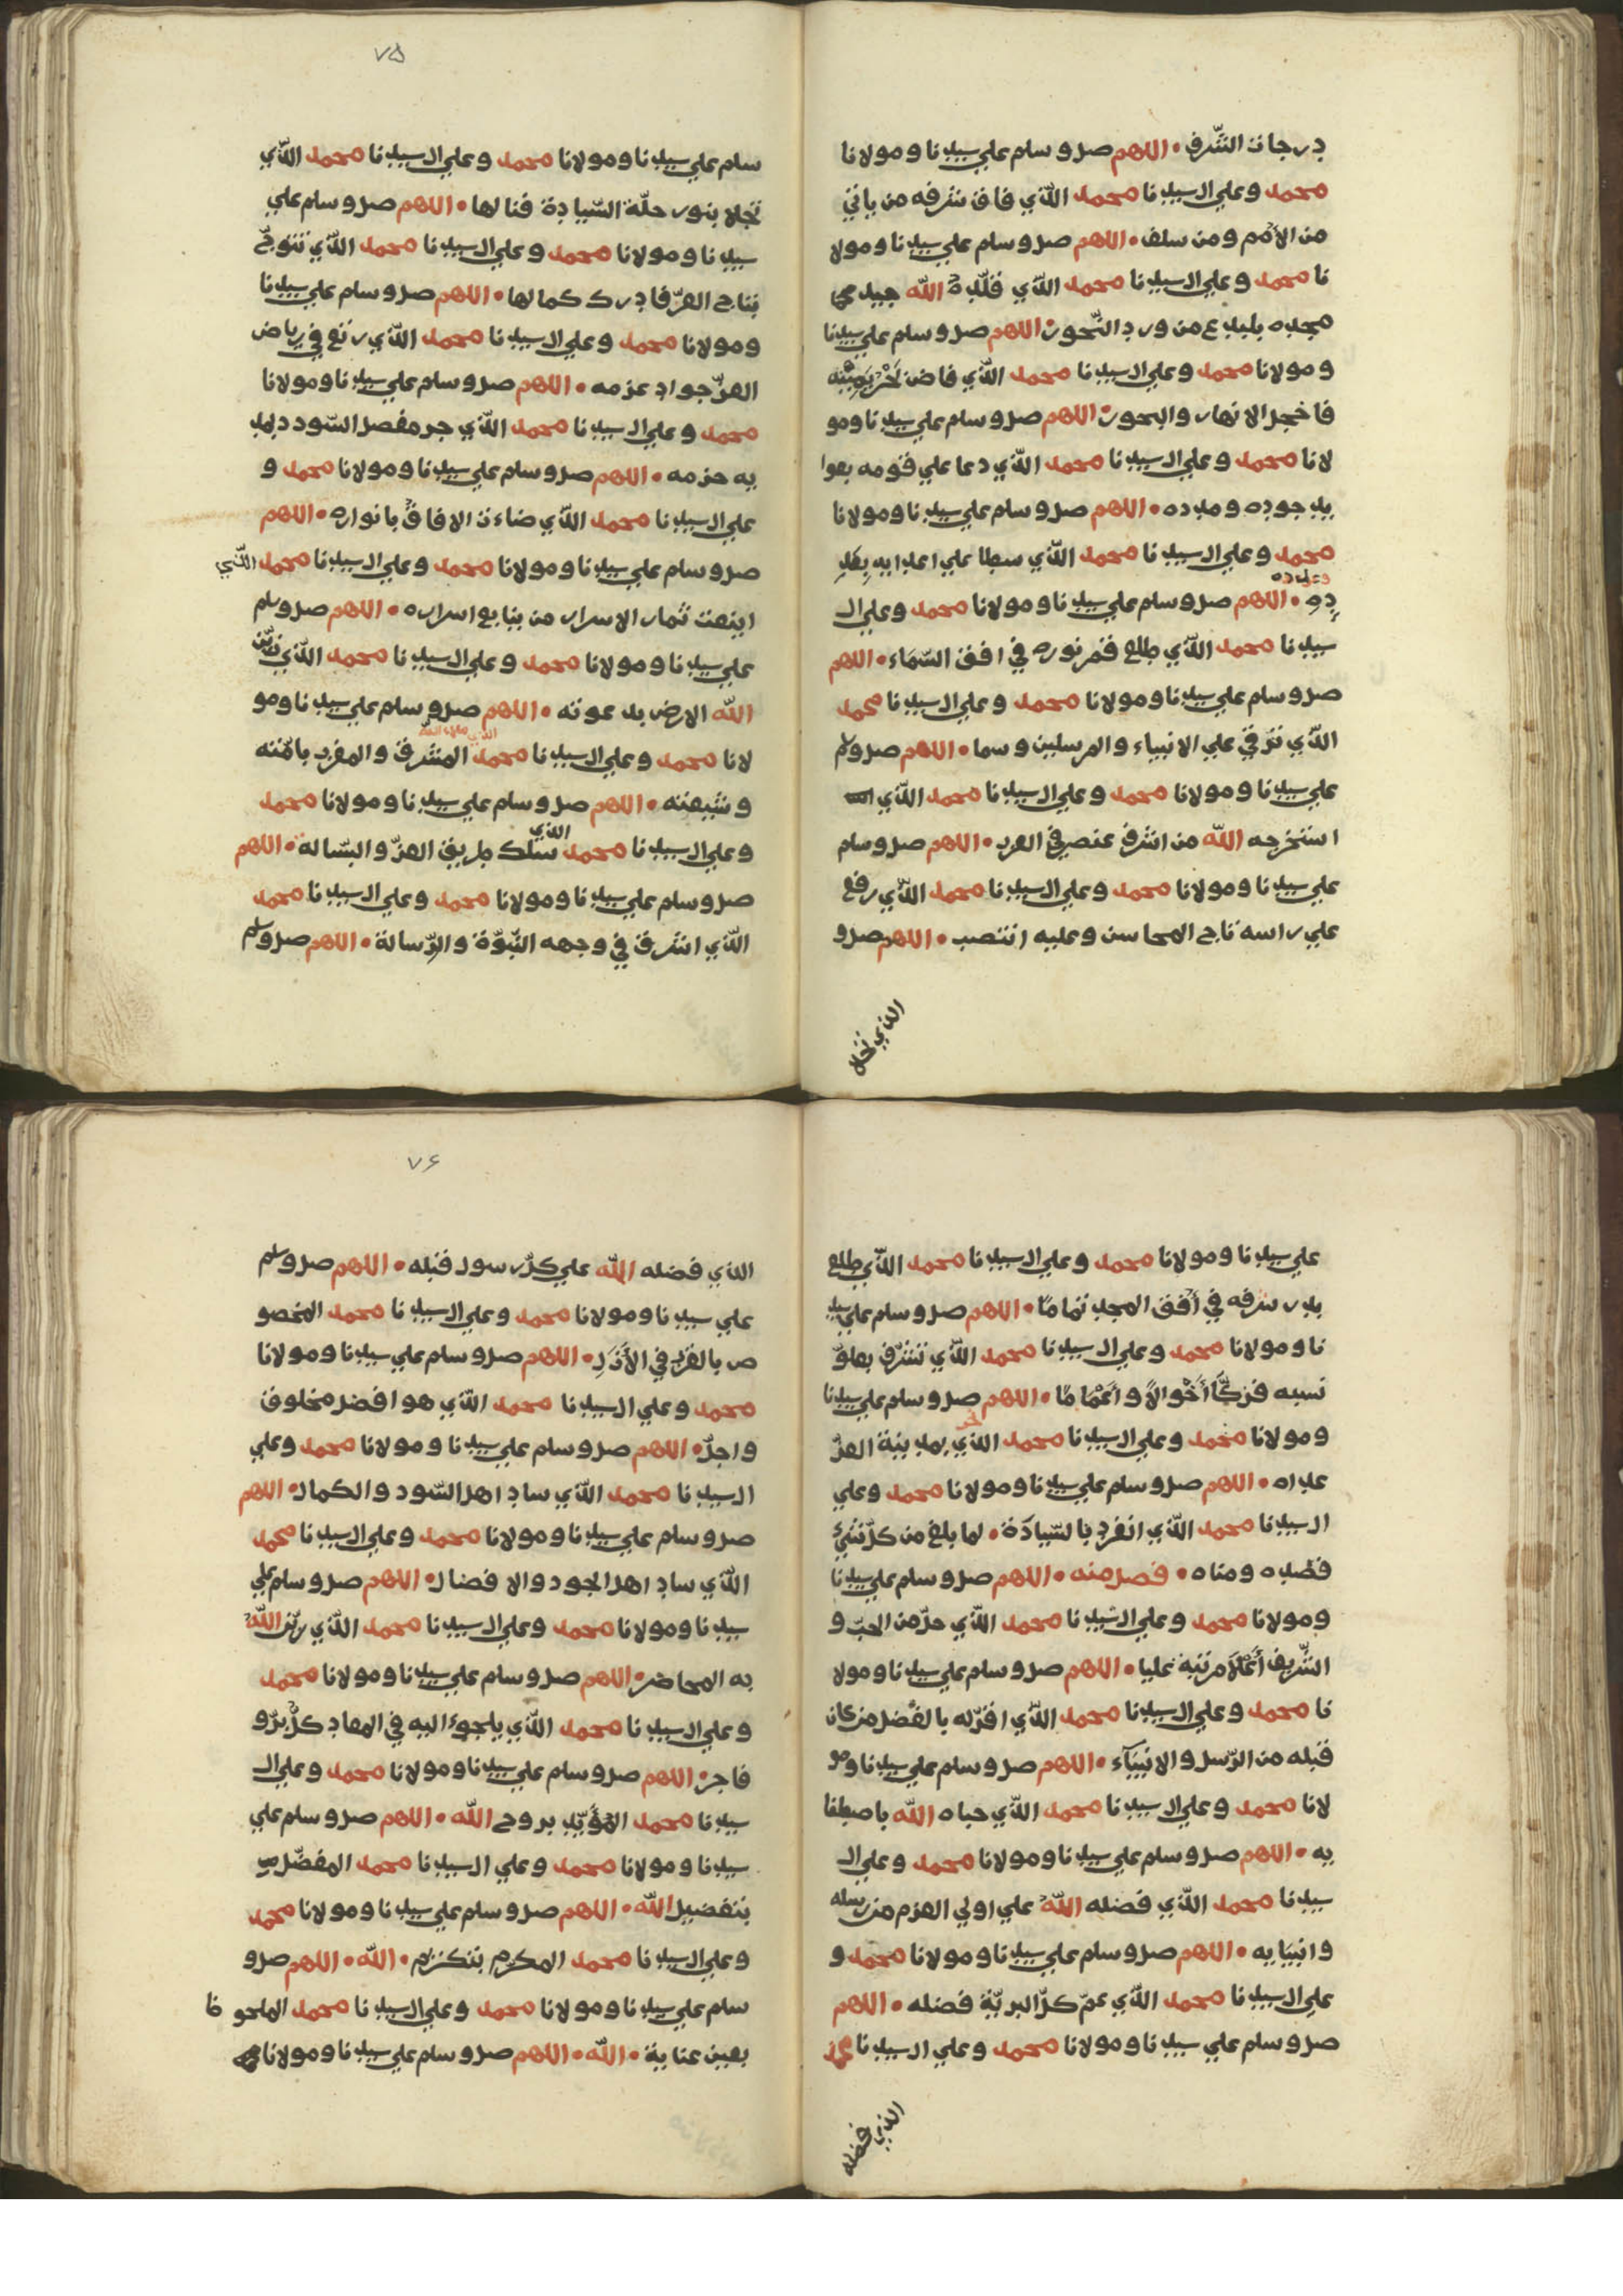 درجات الشّرف • اللهم صل وسلم علي سيدنا ومولانا
محمد وعلي ال سيدنا محمد الذي فاق شرفه من ياتي
من الأمم ومن سلف • اللهم صل وسلم علي سيدنا ومولا
نا محمد وعلي ال سيدنا محمد الّذي قلّده الله جيد
مجده بلبدع من ورد النّحور • اللهم صل وسلم علي سيدنا
ومولانا محمد وعلي ال سيدنا محمد الّذي فاض
فاخجل الانهار والبحور • اللهم صل وسلم علي سيدنا ومو
لانا محمد وعلي ال سيدنا محمد الّذي دعا علي قومه بعوا
يد جوده ومدده • اللهم صل وسلم علي سيدنا ومولانا
محمد وعلي ال سيدنا محمد الّذي سطا علي اعدايه بعد
وعدده
دهِ • اللهم صل وسلم علي سيدنا ومولانا محمد وعلي ال
سيدنا محمد الّذي طلع قمر نوره في افق السّماء • اللهم
صل وسلم علي سيدنا ومولانا محمد وعلي ال سيدنا محمد
الذي ترقي علي الانبياء والمرسلين وسما • اللهم صل وسلم
علي سيدنا ومولانا محمد وعلي ال سيدنا محمد الّذي
استخرجه الله من اشرف عنصر في العرب • اللهم صل وسلم
علي سيدنا ومولانا محمد وعلي ال سيدنا محمد الّذي رفع
علي راسه تاج المحاسن وعليه انتصب • اللهم صل و
الذي تجلا
٧٥
سلم علي سيدنا ومولانا محمد وعلي ال سيدنا محمد الّذي
تجلا بنور حلّة السّيادة فنالها • اللهم صل وسلم علي
سيدنا ومولانا محمد وعلي ال سيدنا محمد الّذي تتوجّ
بتاج العزّ فادرك كمالها • اللهم صل وسلم علي سيدنا
ومولانا محمد وعلي ال سيدنا محمد الّذي رتع في رياض
العزّ جواد عزمه • اللهم صل وسلم علي سيدنا ومولانا
محمد وعلي ال سيدنا محمد الّذي جر مفصل السّودد بيد
يه حزمه • اللهم صل وسلم علي سيدنا ومولانا محمد و
علي ال سيدنا محمد الّذي ضاءت الافاق بانواره • اللهم
صل وسلم علي سيدنا ومولانا محمد وعلي ال سيدنا محمد الّذي
اينعت ثمار الاسرار من ينابيع اسراره • اللهم صل وسلم
علي سيدنا ومولانا محمد وعلي ال سيدنا محمد الّذي زيّن
الله الارض بدعوته • اللهم صل وسلم علي سيدنا ومو
لانا محمد وعلي ال سيدنا محمد المشرق والمغرب بامّته
وشيعته • اللهم صل وسلم علي سيدنا ومولانا محمد
الذي
وعلي ال سيدنا محمد سلك طريق العزّ والبسّالة • اللهم
صل وسلم علي سيدنا ومولانا محمد وعلي ال سيدنا محمد
الّذي اشرق في وجهه النّبوّة والرّسالة • اللهم صل وسلم
علي سيدنا ومولانا محمد وعلي ال سيدنا محمد الّذي طلع
بدر شرفه في أفق المجد تمامًا • اللهم صل وسلم علي سيد
نا ومولانا محمد وعلي ال سيدنا محمد الّذي تشرّف بعلوّ
نسبه فزكّا أخْوالاً واعْمامًا • اللهم صل وسلم علي سيدنا
ومولانا محمد وعلي ال سيدنا محمد الذي بمدينة العزّ
عداه • اللهم صل وسلم علي سيدنا ومولانا محمد وعلي
ال سيدنا محمد الّذي انفرد بالسّيادة • لما بلغ من كلّ شيء
قصده ومناه • فصل منه • اللهم صل وسلم علي سيدنا
ومولانا محمد وعلي ال سيدنا محمد الّذي حلّ من الحبّ و
الشّريف أعْلا مرتبة عليا • اللهم صل وسلم علي سيدنا ومولا
نا محمد وعلي ال سيدنا محمد الّذي اقرّ له بالفضل من كان
قبله من الرّسل والانبيآء • اللهم صل وسلم علي سيدنا ومو
لانا محمد وعلي ال سيدنا محمد الّذي حباه الله باصطفا
يه • اللهم صل وسلم علي سيدنا ومولانا محمد وعلي ال
سيدنا محمد الّذي فضله الله علي اولي العزم من رسله
وانبيايه • اللهم صل وسلم علي سيدنا ومولانا محمد و
علي ال سيدنا محمد الّذي عمّ كلّ البريّة فضله • اللهم
صل وسلم علي سيدنا ومولانا محمد وعلي ال سيدنا محمد
الذي فضله
٧۶
الذي فضله الله علي كلّ رسول قبله • اللهم صل وسلم
علي سيدنا ومولانا محمد وعلي ال سيدنا محمد المخصو
ص بالقرب في الأَزَلِ • اللهم صل وسلم علي سيدنا ومولانا
محمد وعلي ال سيدنا محمد الّذي هو افضل مخلوق
واجلّ • اللهم صل وسلم علي سيدنا ومولانا محمد وعلي
ال سيدنا محمد الّذي ساد اهل السّود والكمال • اللهم
صل وسلم علي سيدنا ومولانا محمد وعلي ال سيدنا محمد
الّذي ساد اهل الجود والافضال • اللهم صل وسلم علي
سيدنا ومولانا محمد وعلي ال سيدنا محمد الّذي زيّن الله
به المحاضر • اللهم صل وسلم علي سيدنا ومولانا محمد
وعلي ال سيدنا محمد الّذي يلجوء اليه في المعاد كلُّ برّ و
فاجر • اللهم صل وسلم علي سيدنا ومولانا محمد وعلي ال
سيدنا محمد المؤيّد بروح الله • اللهم صل وسلم علي
سيدنا ومولانا محمد وعلي ال سيدنا محمد المفضّل
بتفضيل الله • اللهم صل وسلم علي سيدنا ومولانا محمد
وعلي ال سيدنا محمد المكرم بتكريم • الله • اللهم صل و
سلم علي سيدنا ومولانا محمد وعلي ال سيدنا محمد الملحو ظ
بعين عناية • الله • اللهم صل وسلم علي سيدنا ومولانا